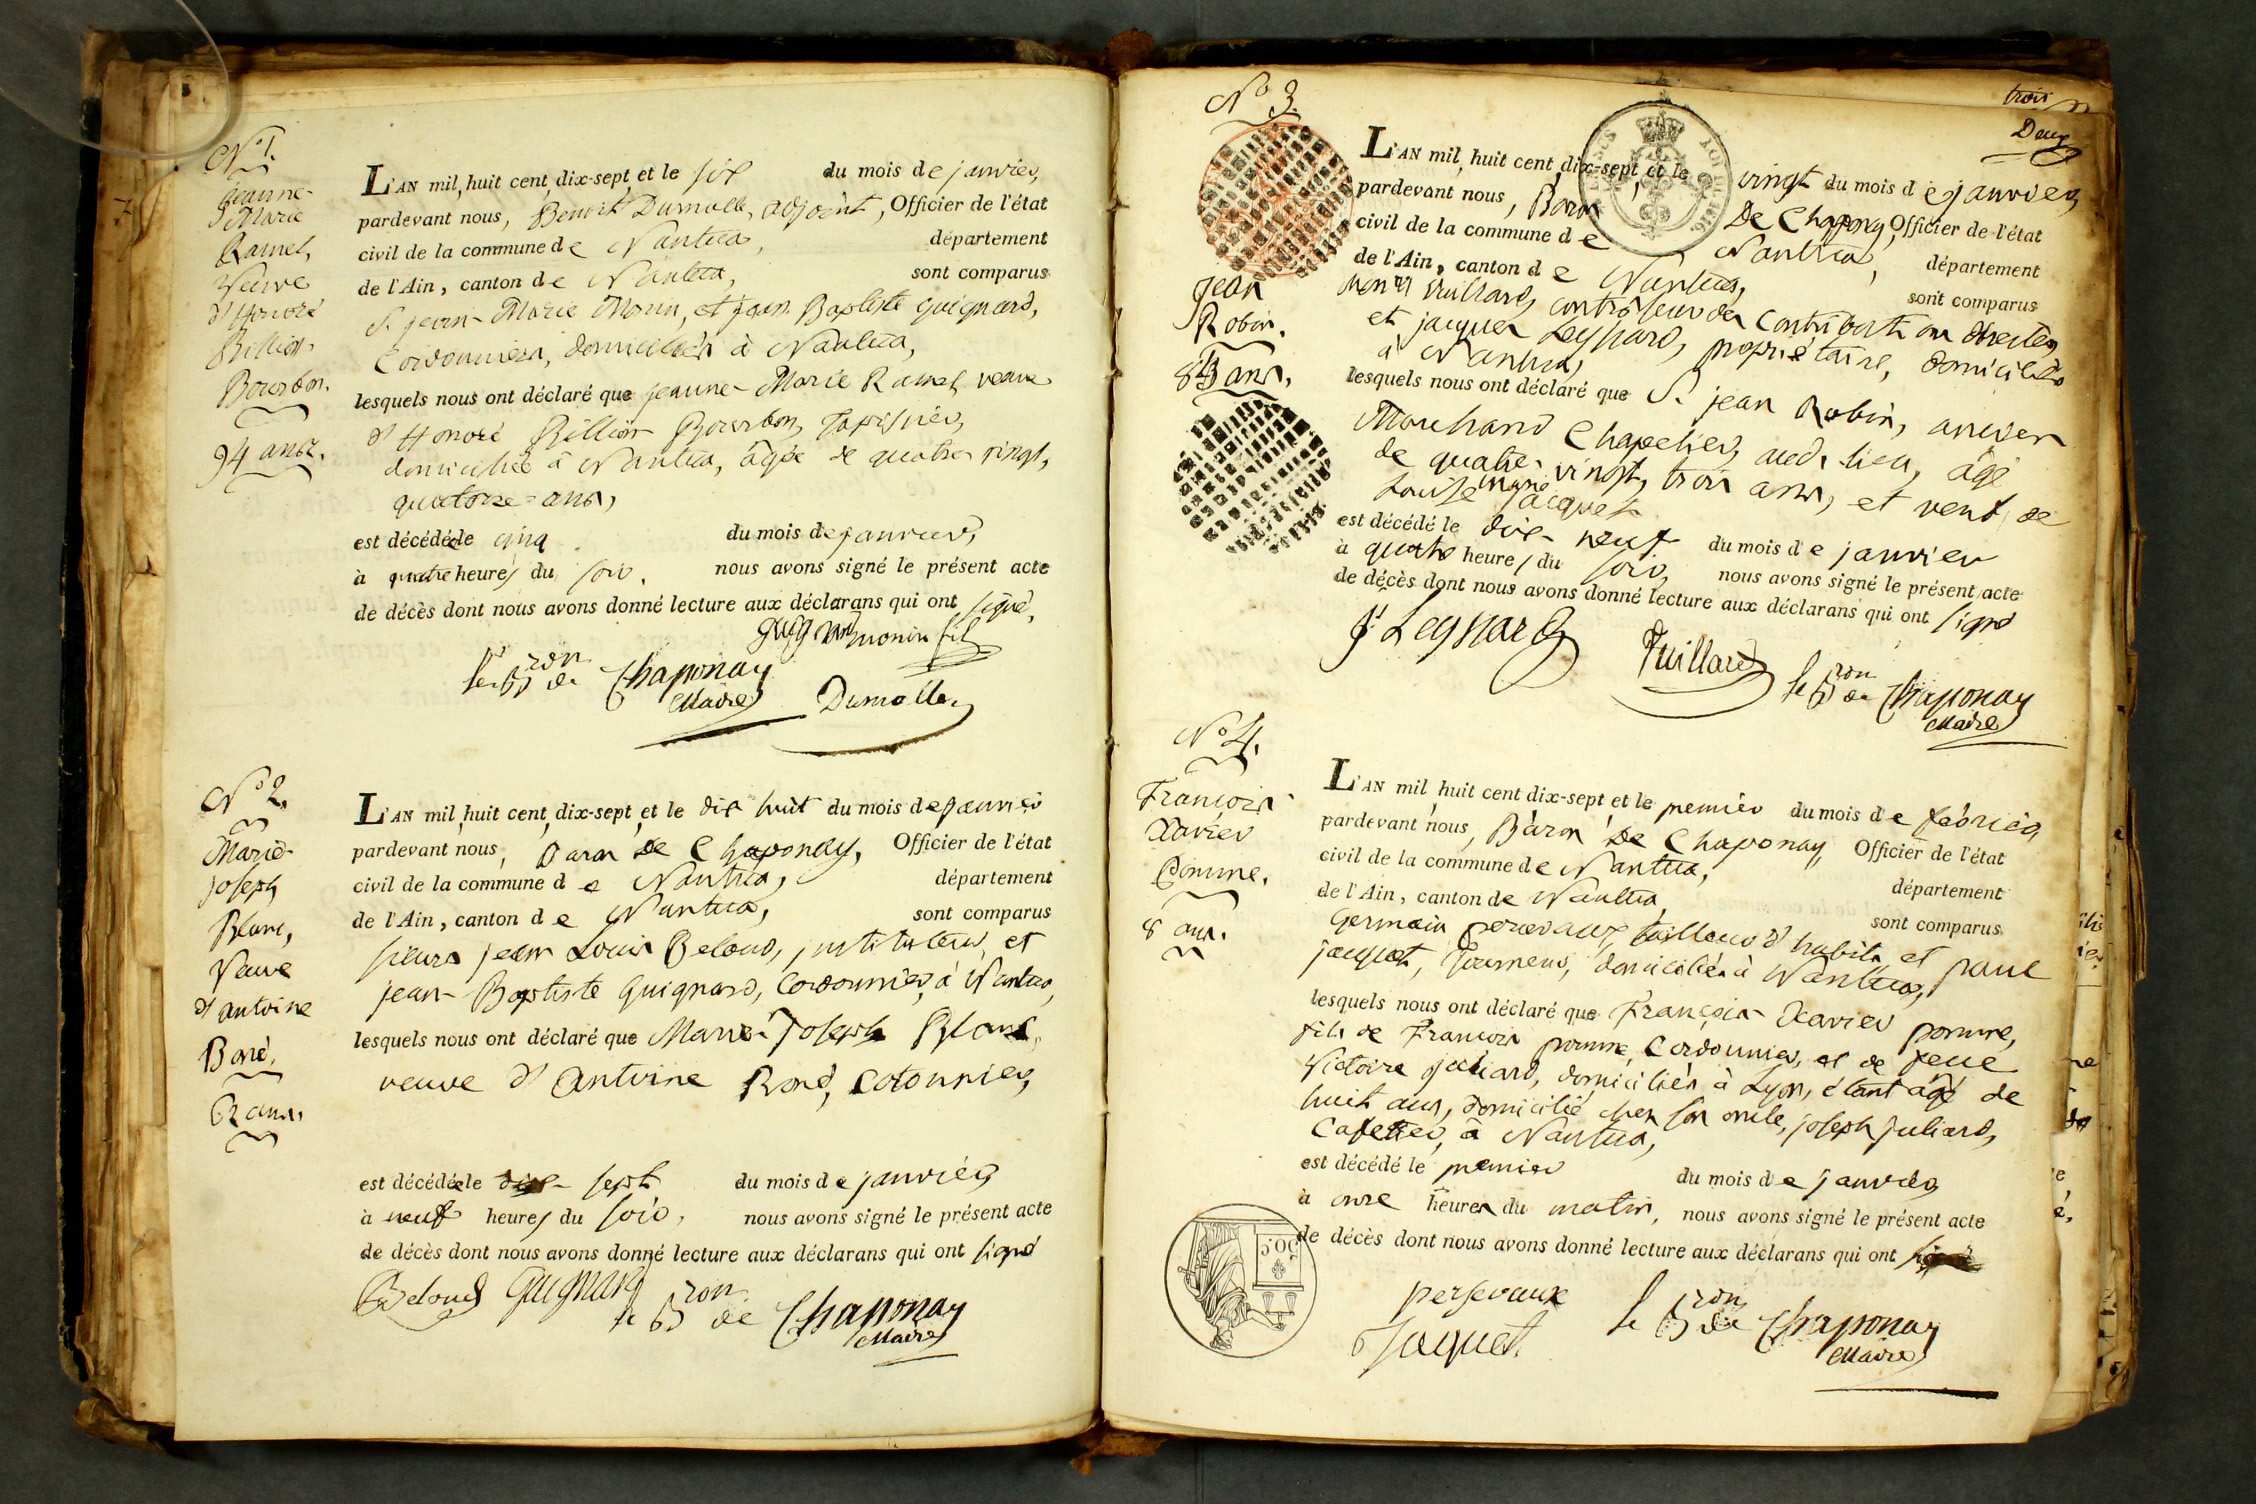 N.º 1.
Jeanne-
Marie
Ramel,
Veuve
d'Honoré
Billion-
Bourbon.
94 ans.
L'AN mil, huit cent, dix-sept, et le six du mois de janvier,
pardevant nous, Benoit Dumolle, adjoint, Officier de l'état
civil de la commune de Nantua, département
de l'Ain, canton de Nantua, sont comparus
S. jean-Marie Monin, et jean Baptiste guignard,
Cordonniers, domiciliés à Nantua,
lesquels nous ont déclaré que jeanne-Marie Ramel, veuve
d'Honoré Billion Bourbon,
domiciliée à Nantua, âgée de quatre vingt,
quatorze ans,
est décédée le cinq du mois de janvier,
à quatre heures du soir, nous avons signé le présent acte
de décès dont nous avons donné lecture aux déclarans qui ont signé.
guignard monin fils
le Bron de Chaponay
Maire
Dumolle
N.º 2.
Marie-
joseph
Blanc,
Veuve
d'antoine
Boné.
62 ans.
L'AN mil, huit cent, dix-sept, et le dix huit du mois de janvier
pardevant nous, Baron de Chaponay, Officier de l'état
civil de la commune de Nantua, département
de l'Ain, canton de Nantua, sont comparus
sieurs jean Louis Beloud, instituteur, et
jean-Baptiste guignard, Cordonnier, à Nantua,
lesquels nous ont déclaré que Marie-joseph Blanc,
veuve d'antoine Boné, Cotonnier,
est décédée le dix-sept du mois de janvier
à neuf heures du soir, nous avons signé le présent acte
de décès dont nous avons donné lecture aux déclarans qui ont signé
Beloud guignard
le Bron de Chaponay
Maire
trois
Deux
N.º 3.
jean
Robin.
83 ans.
L'AN mil, huit cent, dix-sept, et le vingt du mois de janvier
pardevant nous, Baron De Chaponay, Officier de l'état
civil de la commune de Nantua, département
de l'Ain, canton de Nantua, sont comparus
Vuillard, controleur des Contributions directes,
et jacques Leyssard, propriétaire, domiciliés
à Nantua,
lesquels nous ont déclaré que S. jean Robin, ancien
Marchand Chapelier, aud. lieu, âgé
de quatre-vingt, trois ans, et veuf de
Louise Marie jacquet
est décédé le dix-neuf du mois de janvier
à quatre heures du soir, nous avons signé le présent acte
de décès dont nous avons donné lecture aux déclarans qui ont signé
J. Leyssard Vuillard
le Bron de Chaponay
Maire
N.º 4.
François
Xavier
Pomme.
8 ans.
L'AN mil huit cent dix-sept, et le premier du mois de février,
pardevant nous, Baron De Chaponay, Officier de l'état
civil de la commune de Nantua, département
de l'Ain, canton de Nantua, sont comparus
Germain persevaux, tailleur d'habits, et paul
jacquet, Tourneur, domiciliés à Nantua,
lesquels nous ont déclaré que François Xavier pomme,
fils de François pomme, Cordonnier, et de feue
Victoire juliard, domiciliés à Lyon, étant âgé de
huit ans, domicilié chez son oncle, joseph juliard,
Cafetier, à Nantua,
est décédé le premier du mois de janvier
à onze heures du matin, nous avons signé le présent acte
de décès dont nous avons donné lecture aux déclarans qui ont signé
persevaux
Jaquet.
le Bron de Chaponay
Maire
50 C.